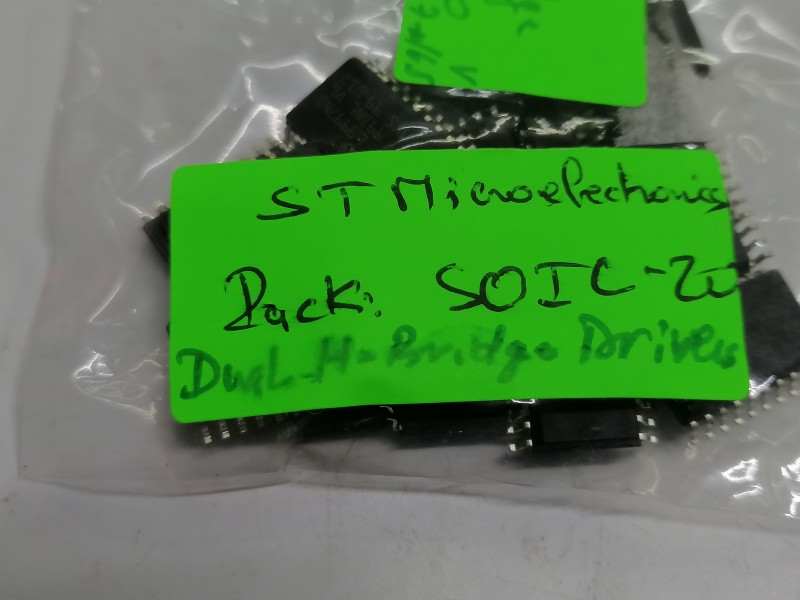 ST Microelectronics
Pack: SOIC-20
Dual-H-Bridge Driver